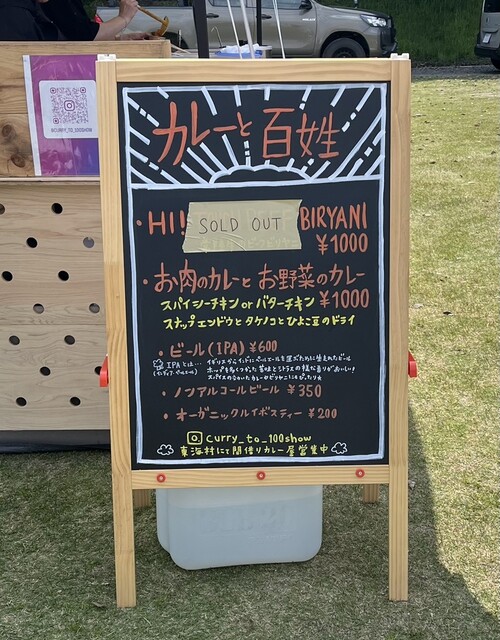 @CURRY_TO_100SHOW
カレーと百姓
・HI! SOLD OUT BIRYANI
¥1000
・お肉のカレーとお野菜のカレー
スパイシーチキン or バターチキン ¥1000
スナップエンドウとタケノコとひよこ豆のドライ
・ビール(IPA) ¥600
IPAとは…
(インディア・ペールエール)
・ノンアルコールビール ¥350
・オーガニックルイボスティー ¥200
curry_to_100show
東海村にて間借りカレー屋営業中